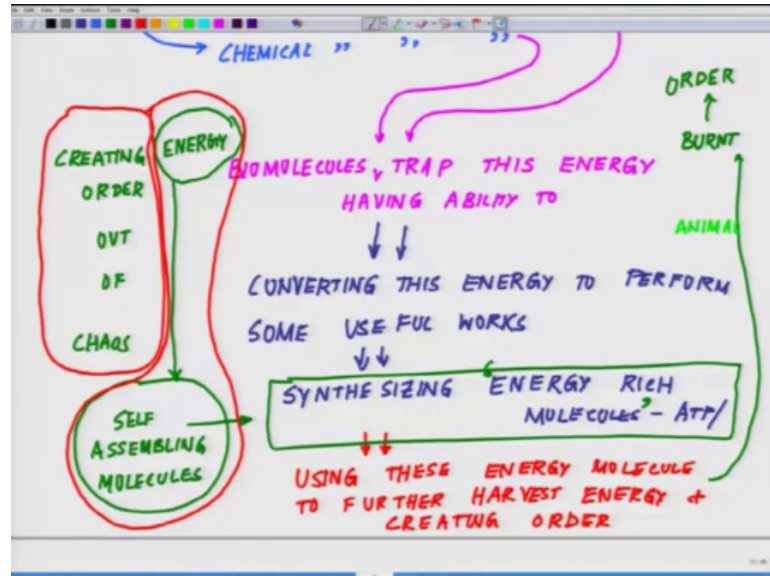 CHEMICAL ,, ,, ,,
ORDER
BURNT
ANIMAL
CREATING
ORDER
OUT
OF
CHAOS
ENERGY
SELF
ASSEMBLING
MOLECULES
BIOMOLECULES, TRAP THIS ENERGY
HAVING ABILITY TO
CONVERTING THIS ENERGY TO PERFORM
SOME USEFUL WORKS
SYNTHESIZING "ENERGY RICH
MOLECULES" - ATP/
USING THESE ENERGY MOLECULE
TO FURTHER HARVEST ENERGY +
CREATING ORDER